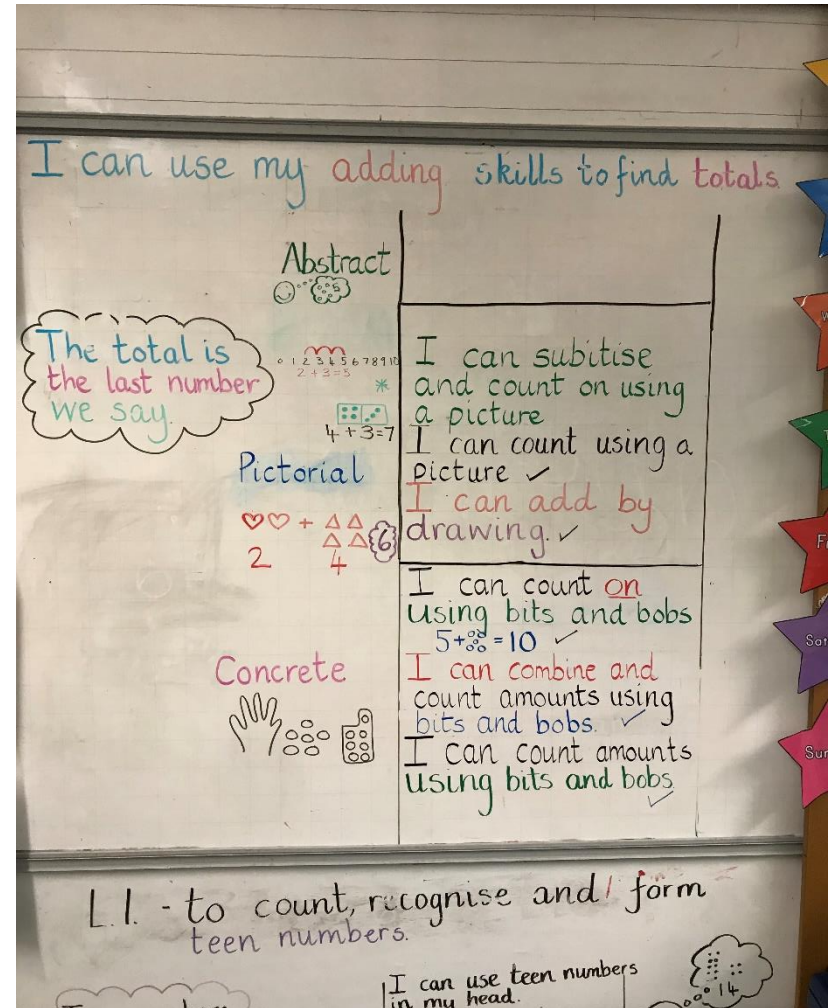 I can use my adding skills to find totals.
Abstract
5
The total is
the last number
we say.
0 1 2 3 4 5 6 7 8 9 10
2 + 3 = 5
*
4 + 3 = 7
I can subitise
and count on using
a picture
I can count using a
picture ✓
Pictorial
I can add by
drawing. ✓
+
6
2 4
I can count on
using bits and bobs
5+ = 10 ✓
Concrete
I can combine and
count amounts using
bits and bobs. ✓
I can count amounts
using bits and bobs
✓
L.I. - to count, recognise and form
teen numbers.
I can use teen numbers
in my head.
14